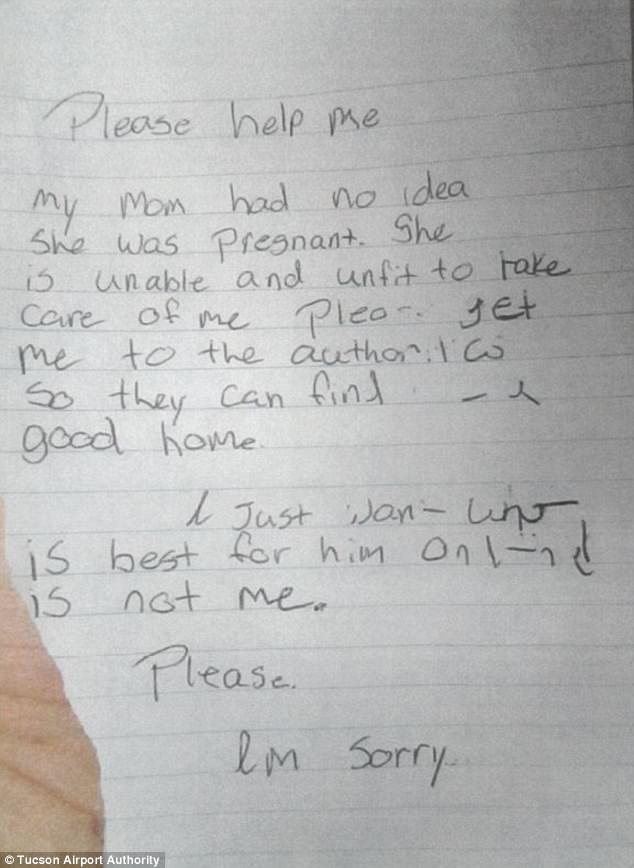 Please help me
my mom had no idea
she was pregnant. She
is unable and unfit to take
care of me
get
me to the
so they can find
good home.
I Just
is best for him
is not me.
Please.
Im sorry.
© Tucson Airport Authority